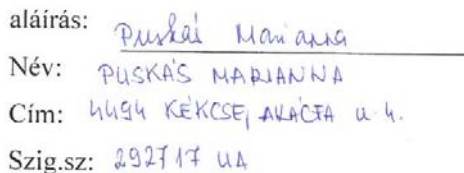 aláírás: Puskás Marianna
Név: PUSKÁS MARIANNA
Cím: 4494 KÉKCSE, AKÁCFA u. 4.
Szig.sz: 292717 UA